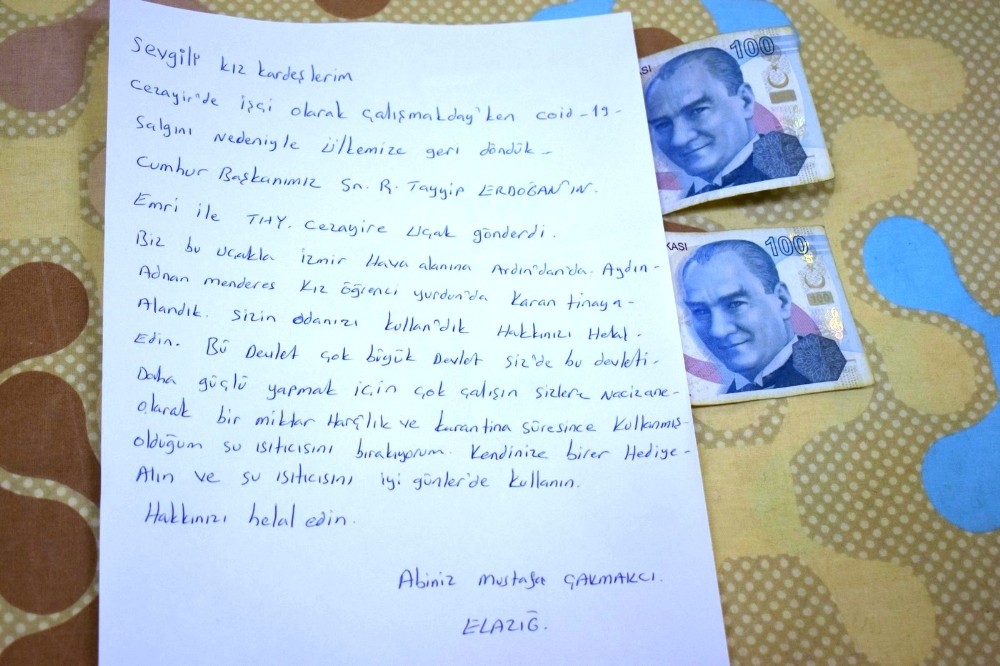 Sevgili kız kardeşlerim
Cezayir'de işçi olarak çalışmakday'ken coid-19-
Salgını nedeniyle ülkemize geri döndük-
Cumhur Başkanımız Sn. R. Tayyip ERDOĞAN'IN.
Emri ile THY. Cezayire uçak gönderdi.
Biz bu uçakla izmir Hava alanına Ardın'dan'da. Aydın-
Adnan menderes kız öğrenci yurdun'da karan tinaya-
Alandık. sizin odanızı kullan'dık Hakkınızı Helal-
Edin. Bü Devlet çok büyük Devlet siz'de bu devleti-
Daha güçlü yapmak için çok çalışın sizlere Nacizane-
olarak bir miktar Harçlık ve karantina süresince kullanmış-
olduğum su ısıtıcısını bırakıyorum. Kendinize birer Hediye-
Alın ve su ısıtıcısını iyi günler'de kullanın.
Hakkınızı helal edin.
Abiniz Mustafa ÇAKMAKCI.
ELAZIĞ.
100
KASI
100
100